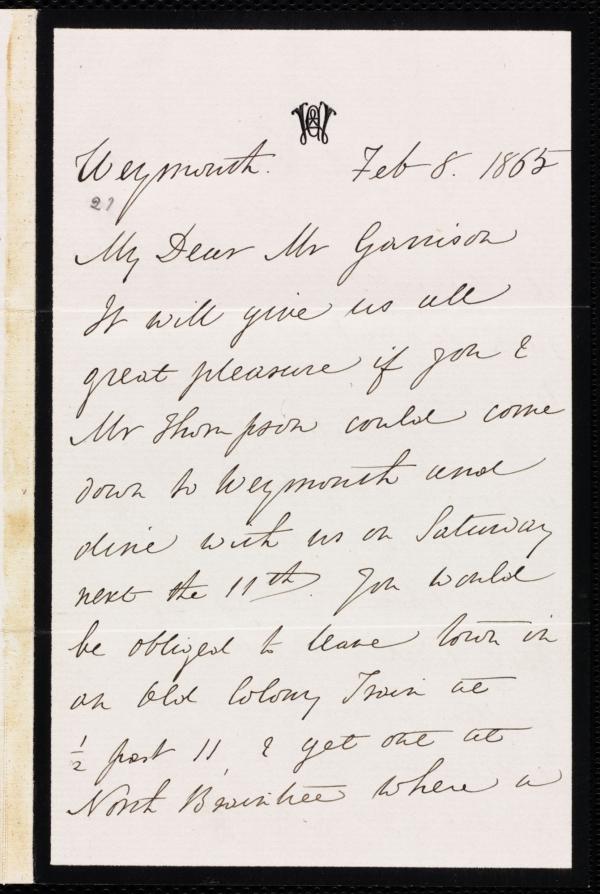 Weymouth. Feb 8. 1865
21
My Dear Mr Garrison
It will give us all
great pleasure if you &
Mr Thompson could come
down to Weymouth and
dine with us on Saturday
next the 11th. You would
be obliged to leave town in
an Old Colony Train at
1/2 past 11, & get out at
North Braintree where a